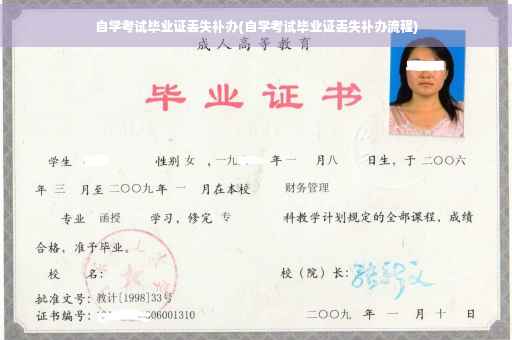 自学考试毕业证丢失补办(自学考试毕业证丢失补办流程)
成人高等教育
毕业证书
学生 性别 女 ，一九 年 一 月八 日生，于 二〇〇六
年 三 月至 二〇〇九 年 一 月在本校 财务管理
专业 函授 学习，修完 专 科教学计划规定的全部课程，成绩
合格，准予毕业。
校 名： 校（院）长：
批准文号：教计[1998]33号
证书编号： 06001310 二〇〇九 年 一 月 十 日